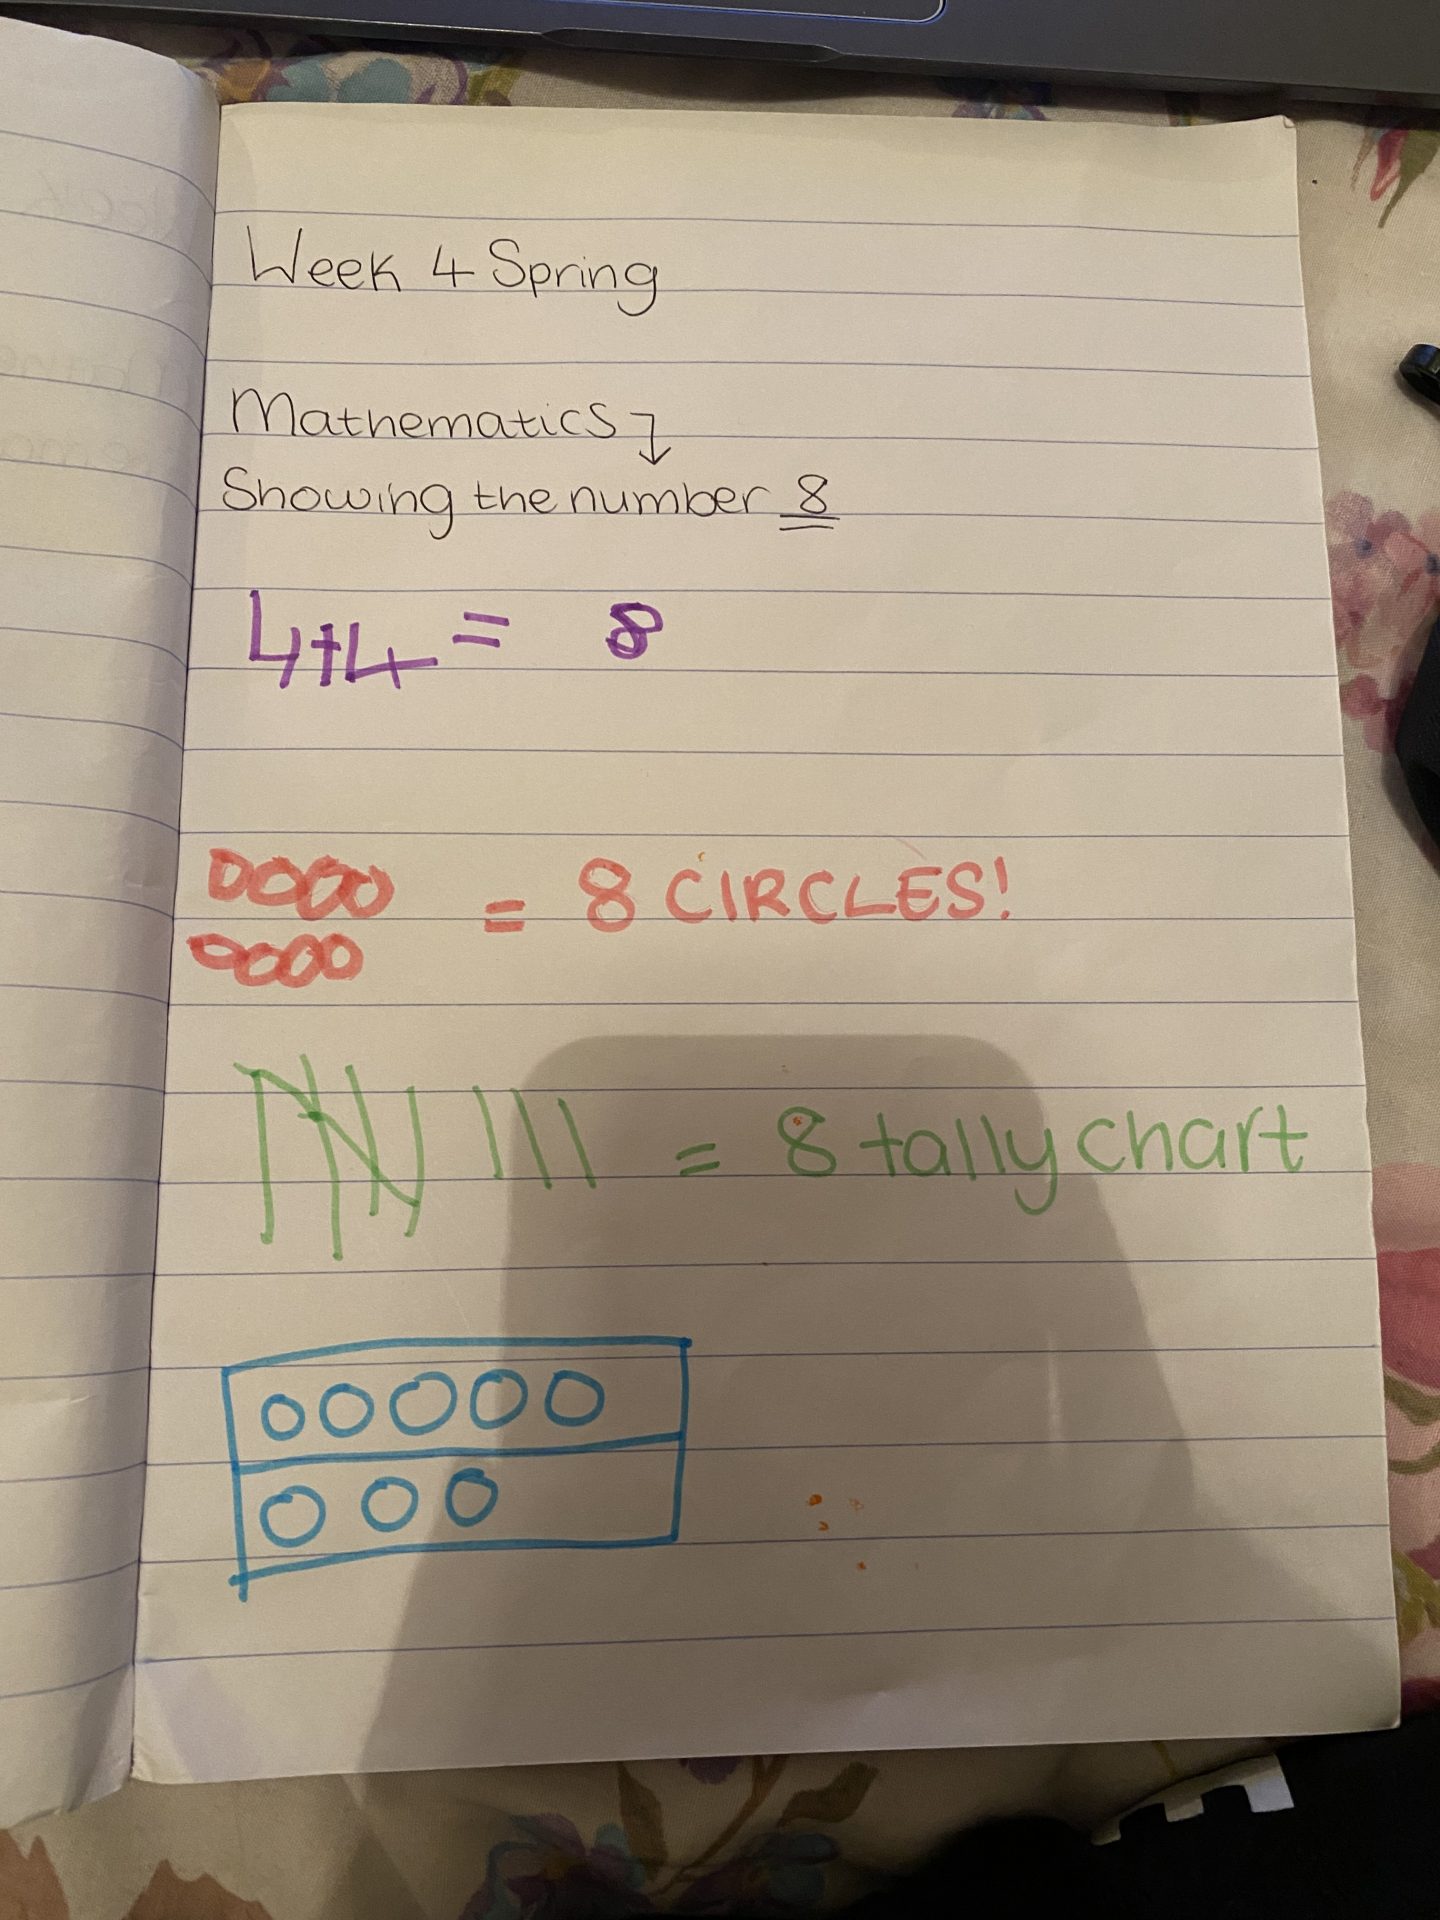 Week 4 Spring
Mathematics
Showing the number 8
4+4 = 8
= 8 CIRCLES!
= 8 tally chart